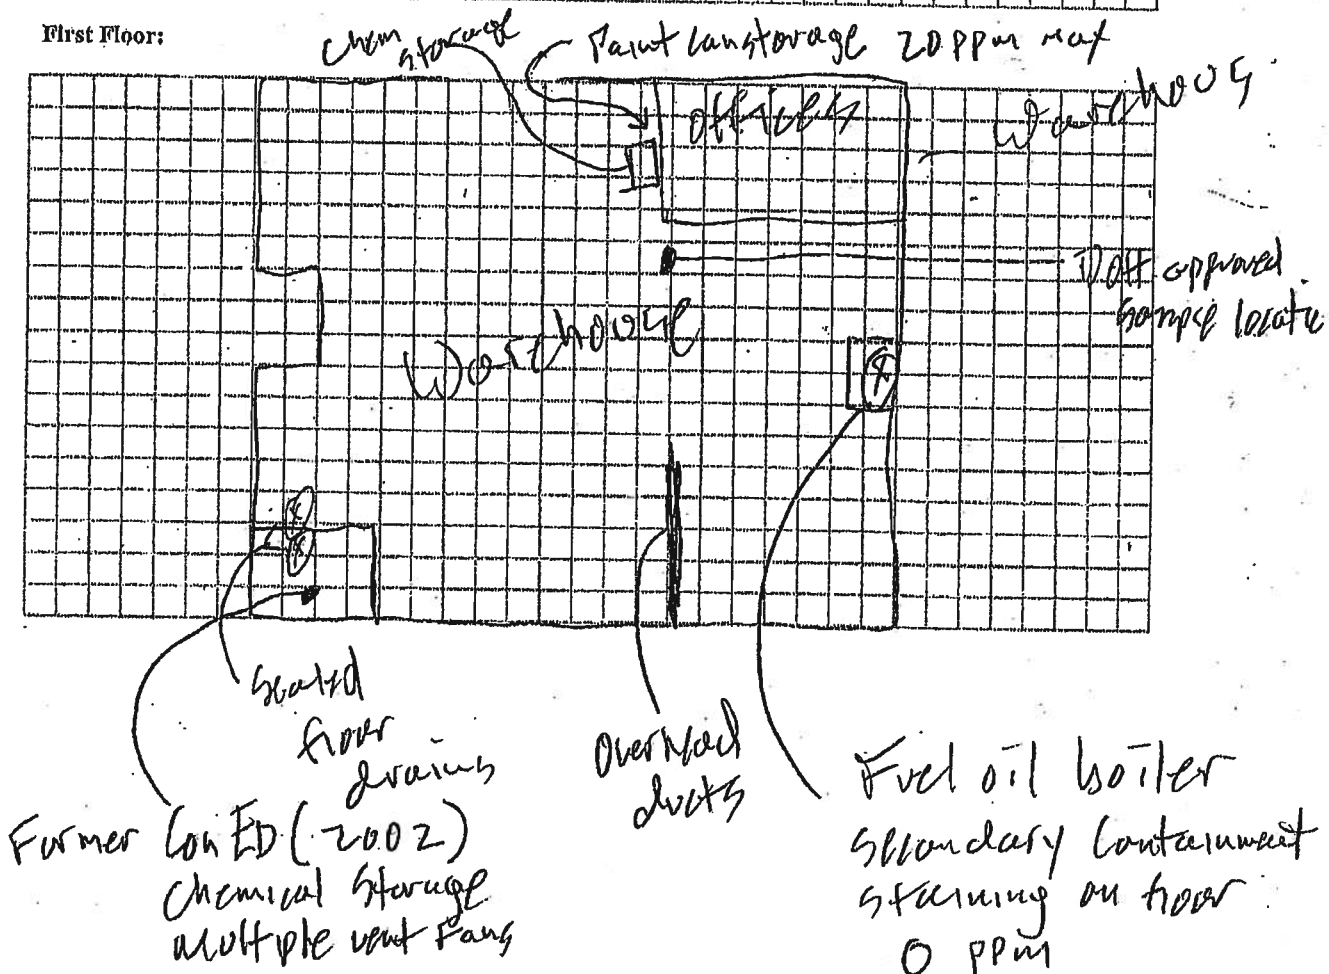 First Floor:
Chem storage
Paint Can storage 20 ppm max
offices
Warehouse
approved
sample locatio
Warehouse
Sealed
floor
drains
Overhead
ducts
Former Con ED (2002)
Chemical Storage
Multiple vent Fans
Fuel oil boiler
secondary containment
staining on floor
0 ppm